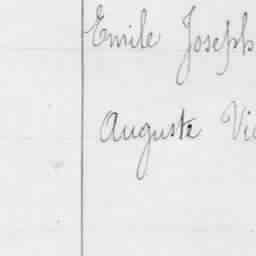 Emile Joseph
Auguste Vic